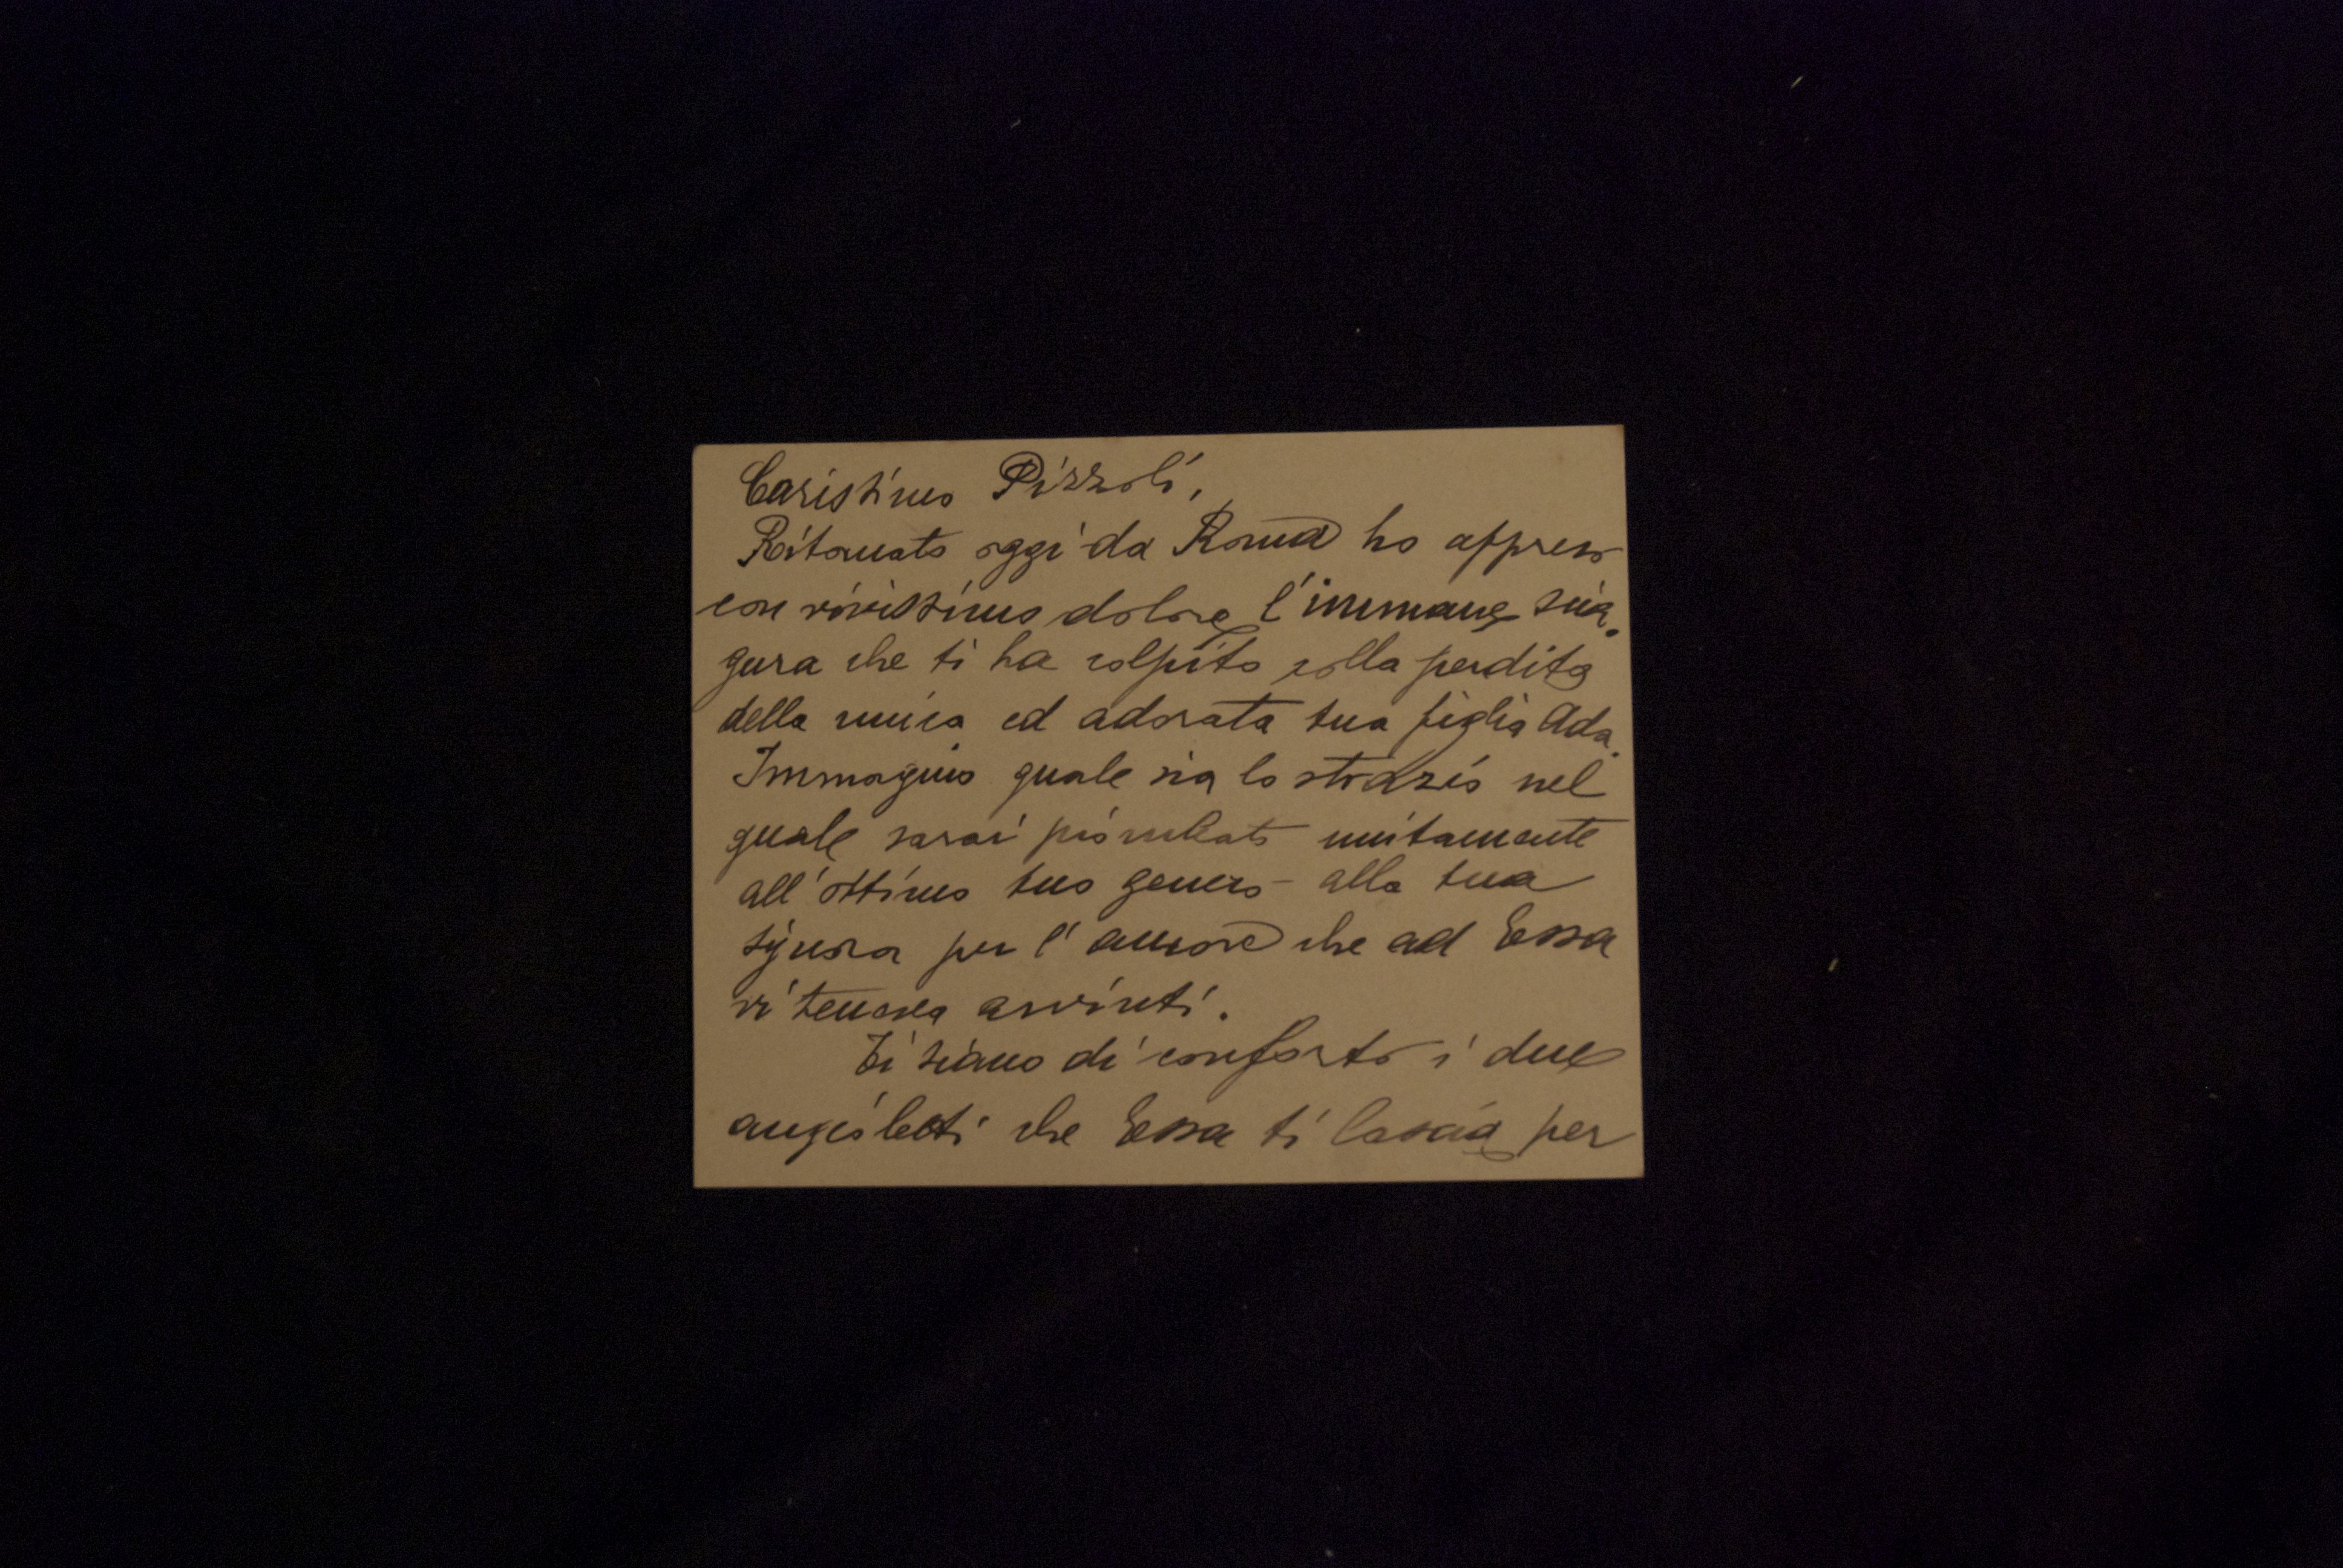 Carissimo Pizzoli,
Ritornato oggi da Roma ho appreso
con vivissimo dolore l'immane scia-
gura che ti ha colpito colla perdita
della unica ed adorata tua figlia Ada.
Immagino quale sia lo strazio nel
quale sarai piombato unitamente
all'ottimo tuo genero - alla tua
signora per l'amore che ad Essa
vi teneva avvinti.
Ti siano di conforto i due
angioletti che Essa ti lascia per